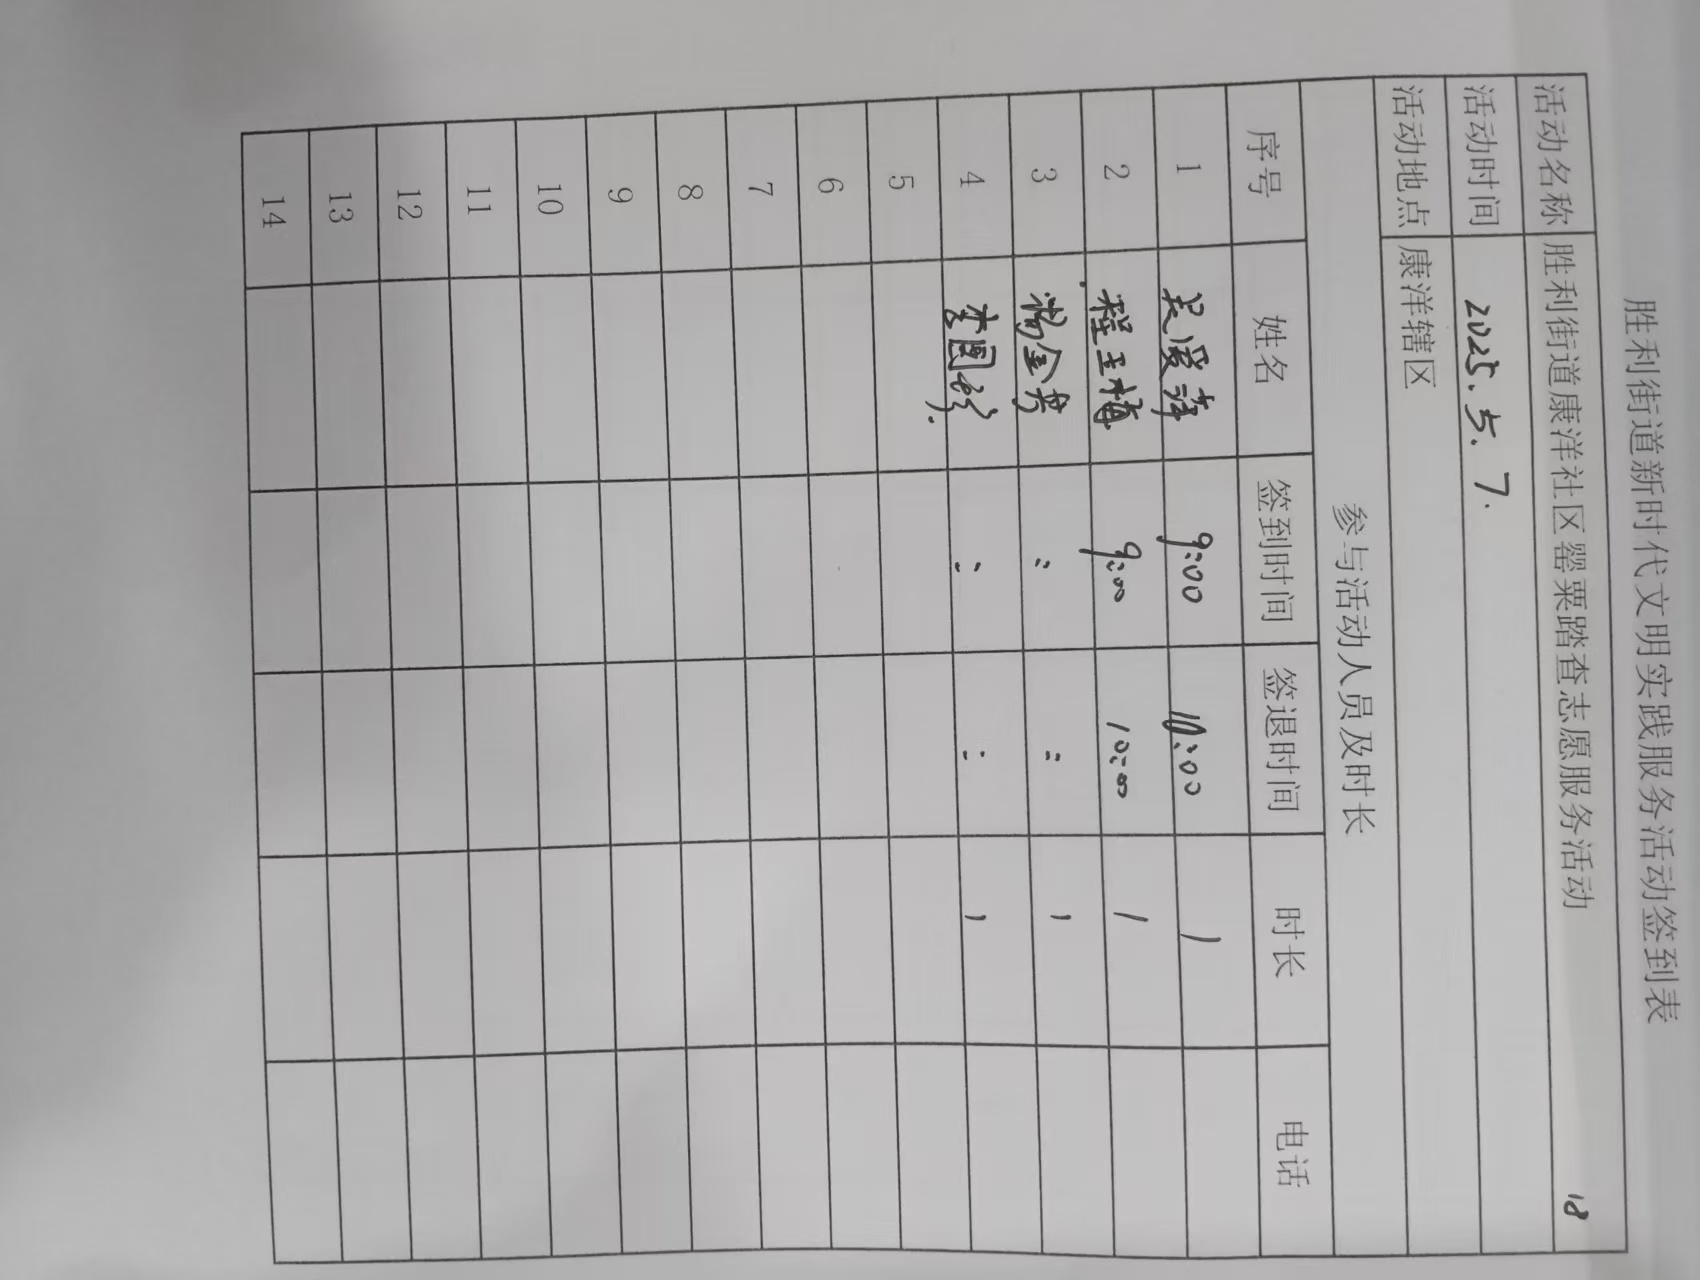 胜利街道新时代文明实践服务活动签到表
活动名称 胜利街道康洋社区罂粟踏查志愿服务活动 18
活动时间 2025.5.7.
活动地点 康洋辖区
参与活动人员及时长
序号 姓名 签到时间 签退时间 时长 电话
1 吴爱萍 9:00 10:00 1
2 程玉梅 9:00 10:00 1
3 杨金 〃 〃 1
4 李国 〃 〃 1
5
6
7
8
9
10
11
12
13
14